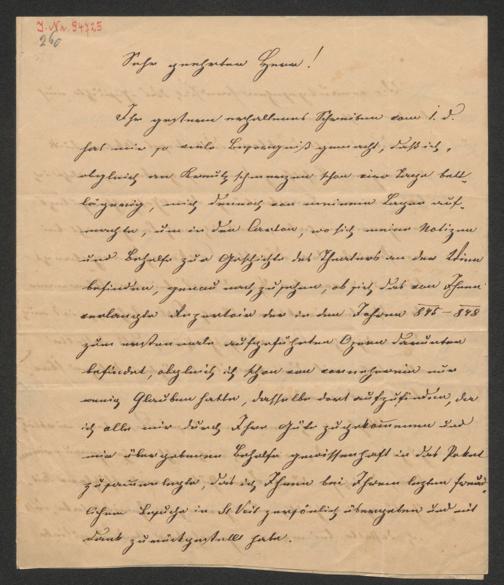 I. Nr. 54725
260
Sehr geehrter Herr!
Ihr gestern erhaltenes Schreiben vom 1. d.
hat mir so viele Besorgniß gemacht, daß ich,
obgleich an Kreutzschmerzen schon vier Tage bett-
lägerig, mich dennoch von meinem Lager auf-
machte, um in den Carton, wo sich meine Notizen
und Behelfe zur Geschichte des Theaters an der Wien
befinden, genau nachzusehen, ob sich das von Ihnen
verlangte Repertoir der in den Jahren 845 – 848
zum erstenmale aufgeführten Opern darunter
befindet, obgleich ich schon von vorneherein nur
wenig Glauben hatte, dasselbe dort aufzufinden, da
ich alle mir durch Ihre Güte zugekommenen und
mir übergebenen Behelfe gewissenhaft in das Paket
zusammenlegte, das ich Ihnen bei Ihrem letzten freund-
lichen Besuche in St Veit persönlich übergeben und mit
Dank zurückgestellt habe.